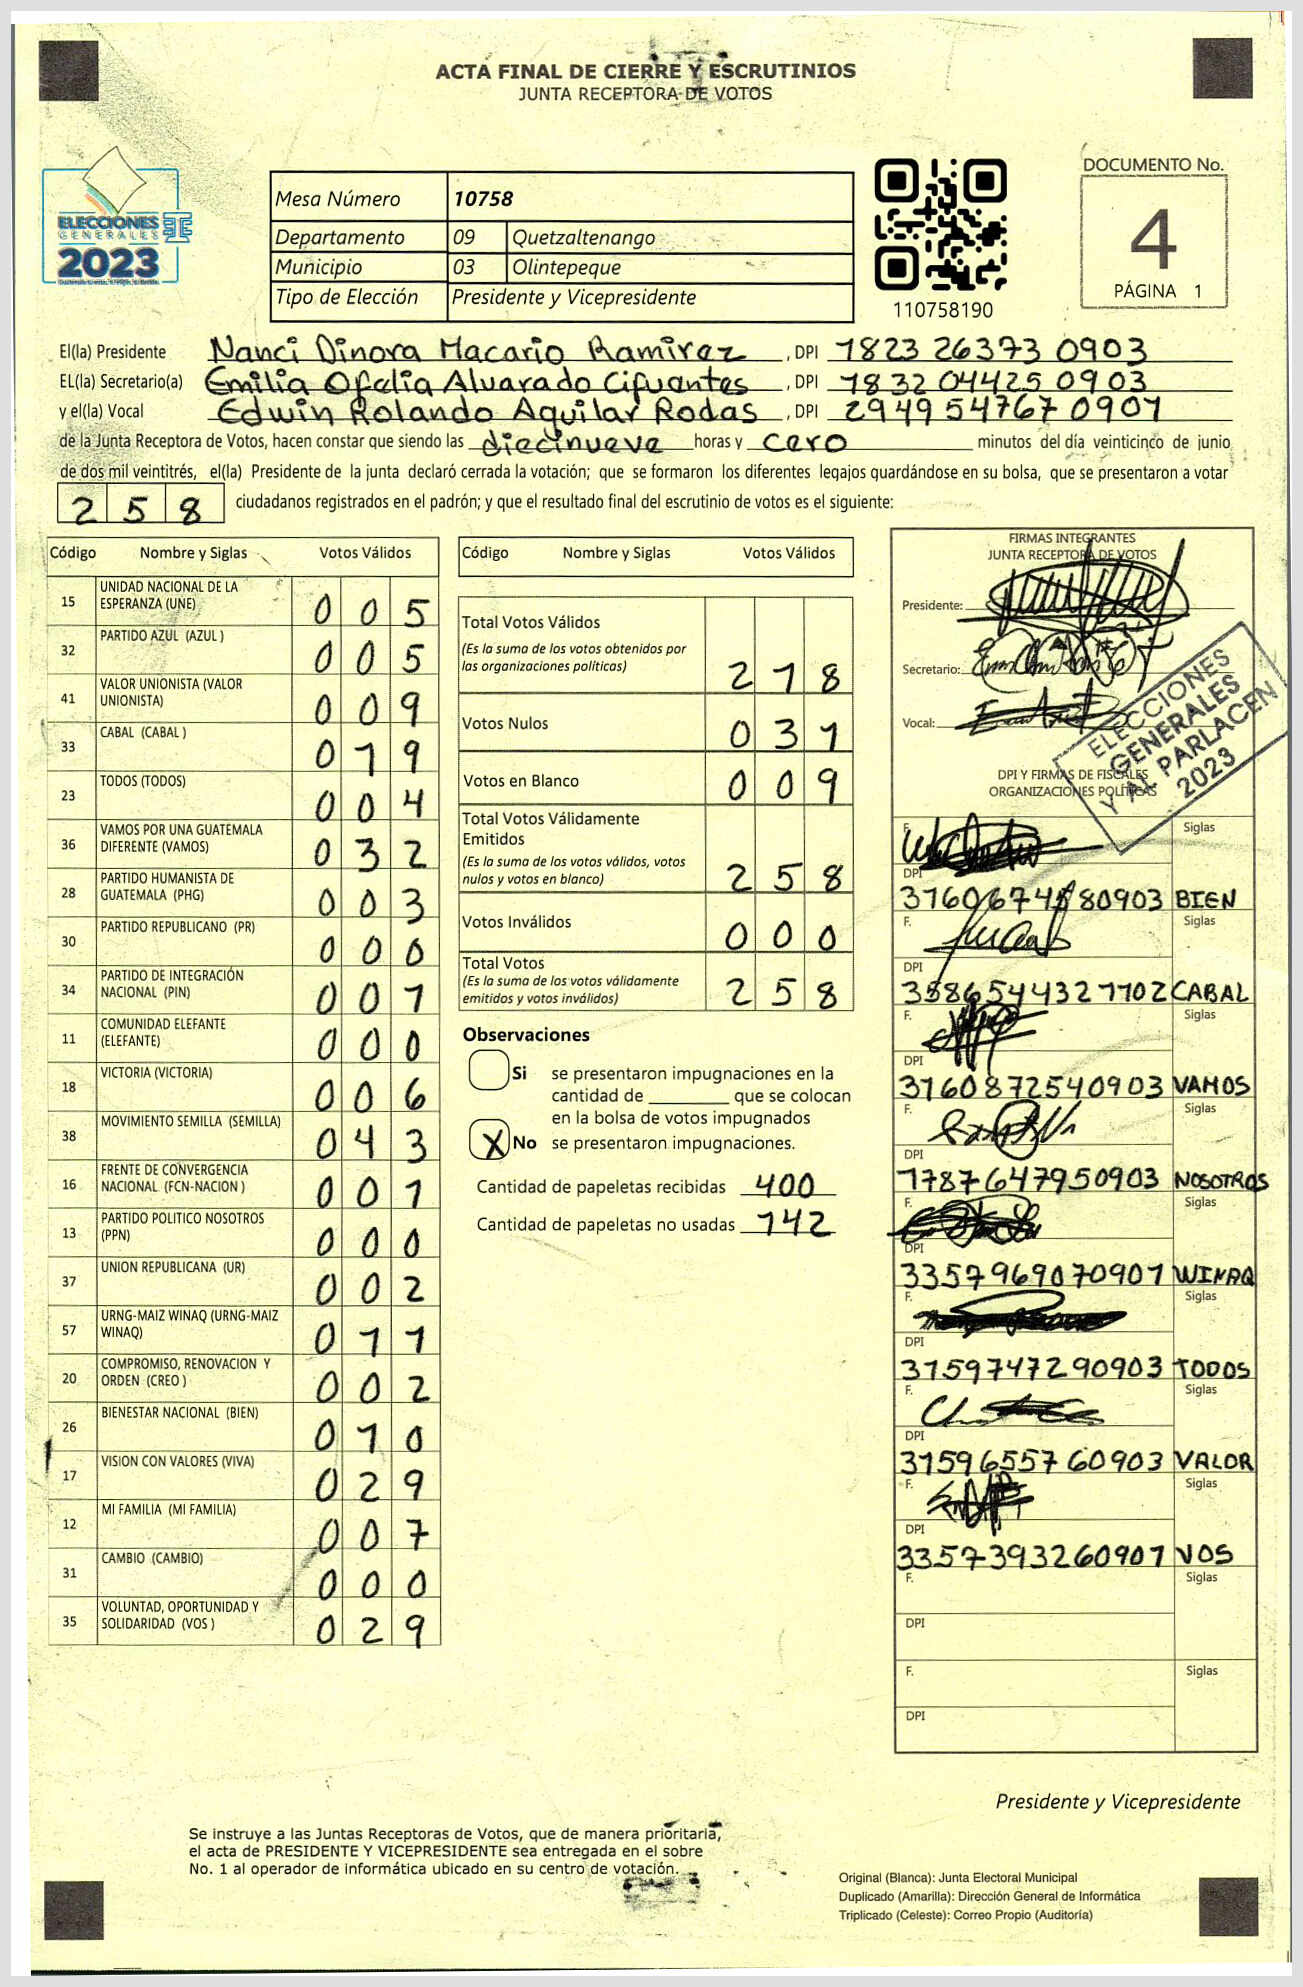 ACTA FINAL DE CIERRE Y ESCRUTINIOS
JUNTA RECEPTORA DE VOTOS
ELECCIONES
GENERALES
2023
Mesa Número 10758
Departamento 09 Quetzaltenango
Municipio 03 Olintepeque
Tipo de Elección Presidente y Vicepresidente
110758190
DOCUMENTO No.
4
PÁGINA 1
El(la) Presidente Nanci Dinora Macario Ramirez , DPI 1823 26373 0903
EL(la) Secretario(a) Emilia Ofelia Alvarado Cifuantes , DPI 1832 04425 0903
y el(la) Vocal Edwin Rolando Aguilar Rodas , DPI 2949 54767 0901
de la Junta Receptora de Votos, hacen constar que siendo las diecinueve horas y cero minutos del día veinticinco de junio
de dos mil veintitrés, el(la) Presidente de la junta declaró cerrada la votación; que se formaron los diferentes legajos quardándose en su bolsa, que se presentaron a votar
258 ciudadanos registrados en el padrón; y que el resultado final del escrutinio de votos es el siguiente:
Código Nombre y Siglas Votos Válidos
15 UNIDAD NACIONAL DE LA
ESPERANZA (UNE) 005
32 PARTIDO AZUL (AZUL ) 005
41 VALOR UNIONISTA (VALOR
UNIONISTA) 009
33 CABAL (CABAL ) 019
23 TODOS (TODOS) 004
36 VAMOS POR UNA GUATEMALA
DIFERENTE (VAMOS) 032
28 PARTIDO HUMANISTA DE
GUATEMALA (PHG) 003
30 PARTIDO REPUBLICANO (PR) 000
34 PARTIDO DE INTEGRACIÓN
NACIONAL (PIN) 001
11 COMUNIDAD ELEFANTE
(ELEFANTE) 000
18 VICTORIA (VICTORIA) 006
38 MOVIMIENTO SEMILLA (SEMILLA) 043
16 FRENTE DE CONVERGENCIA
NACIONAL (FCN-NACION ) 001
13 PARTIDO POLITICO NOSOTROS
(PPN) 000
37 UNION REPUBLICANA (UR) 002
57 URNG-MAIZ WINAQ (URNG-MAIZ
WINAQ) 011
20 COMPROMISO, RENOVACION Y
ORDEN (CREO ) 002
26 BIENESTAR NACIONAL (BIEN) 010
17 VISION CON VALORES (VIVA) 029
12 MI FAMILIA (MI FAMILIA) 007
31 CAMBIO (CAMBIO) 000
35 VOLUNTAD, OPORTUNIDAD Y
SOLIDARIDAD (VOS ) 029
Código Nombre y Siglas Votos Válidos
Total Votos Válidos
(Es la suma de los votos obtenidos por
las organizaciones políticas) 218
Votos Nulos 031
Votos en Blanco 009
Total Votos Válidamente
Emitidos
(Es la suma de los votos válidos, votos
nulos y votos en blanco) 258
Votos Inválidos 000
Total Votos
(Es la suma de los votos válidamente
emitidos y votos inválidos) 258
Observaciones
Si se presentaron impugnaciones en la
cantidad de ________ que se colocan
en la bolsa de votos impugnados
X No se presentaron impugnaciones.
Cantidad de papeletas recibidas 400
Cantidad de papeletas no usadas 142
FIRMAS INTEGRANTES
JUNTA RECEPTORA DE VOTOS
Presidente:
Secretario:
Vocal:
ELECCIONES
GENERALES
Y AL PARLACEN
2023
DPI Y FIRMAS DE FISCALES
ORGANIZACIONES POLÍTICAS
F. Siglas
DPI
3160674580903 BIEN
F. Siglas
DPI
3586544321102 CABAL
F. Siglas
DPI
3160872540903 VAMOS
F. Siglas
DPI
1787647950903 NOSOTROS
F. Siglas
DPI
3357969070901 WINAQ
F. Siglas
DPI
3159747290903 TODOS
F. Siglas
DPI
3159655760903 VALOR
F. Siglas
DPI
3357393260901 VOS
F. Siglas
DPI
F. Siglas
DPI
Presidente y Vicepresidente
Se instruye a las Juntas Receptoras de Votos, que de manera prioritaria,
el acta de PRESIDENTE Y VICEPRESIDENTE sea entregada en el sobre
No. 1 al operador de informática ubicado en su centro de votación.
Original (Blanca): Junta Electoral Municipal
Duplicado (Amarilla): Dirección General de Informática
Triplicado (Celeste): Correo Propio (Auditoría)